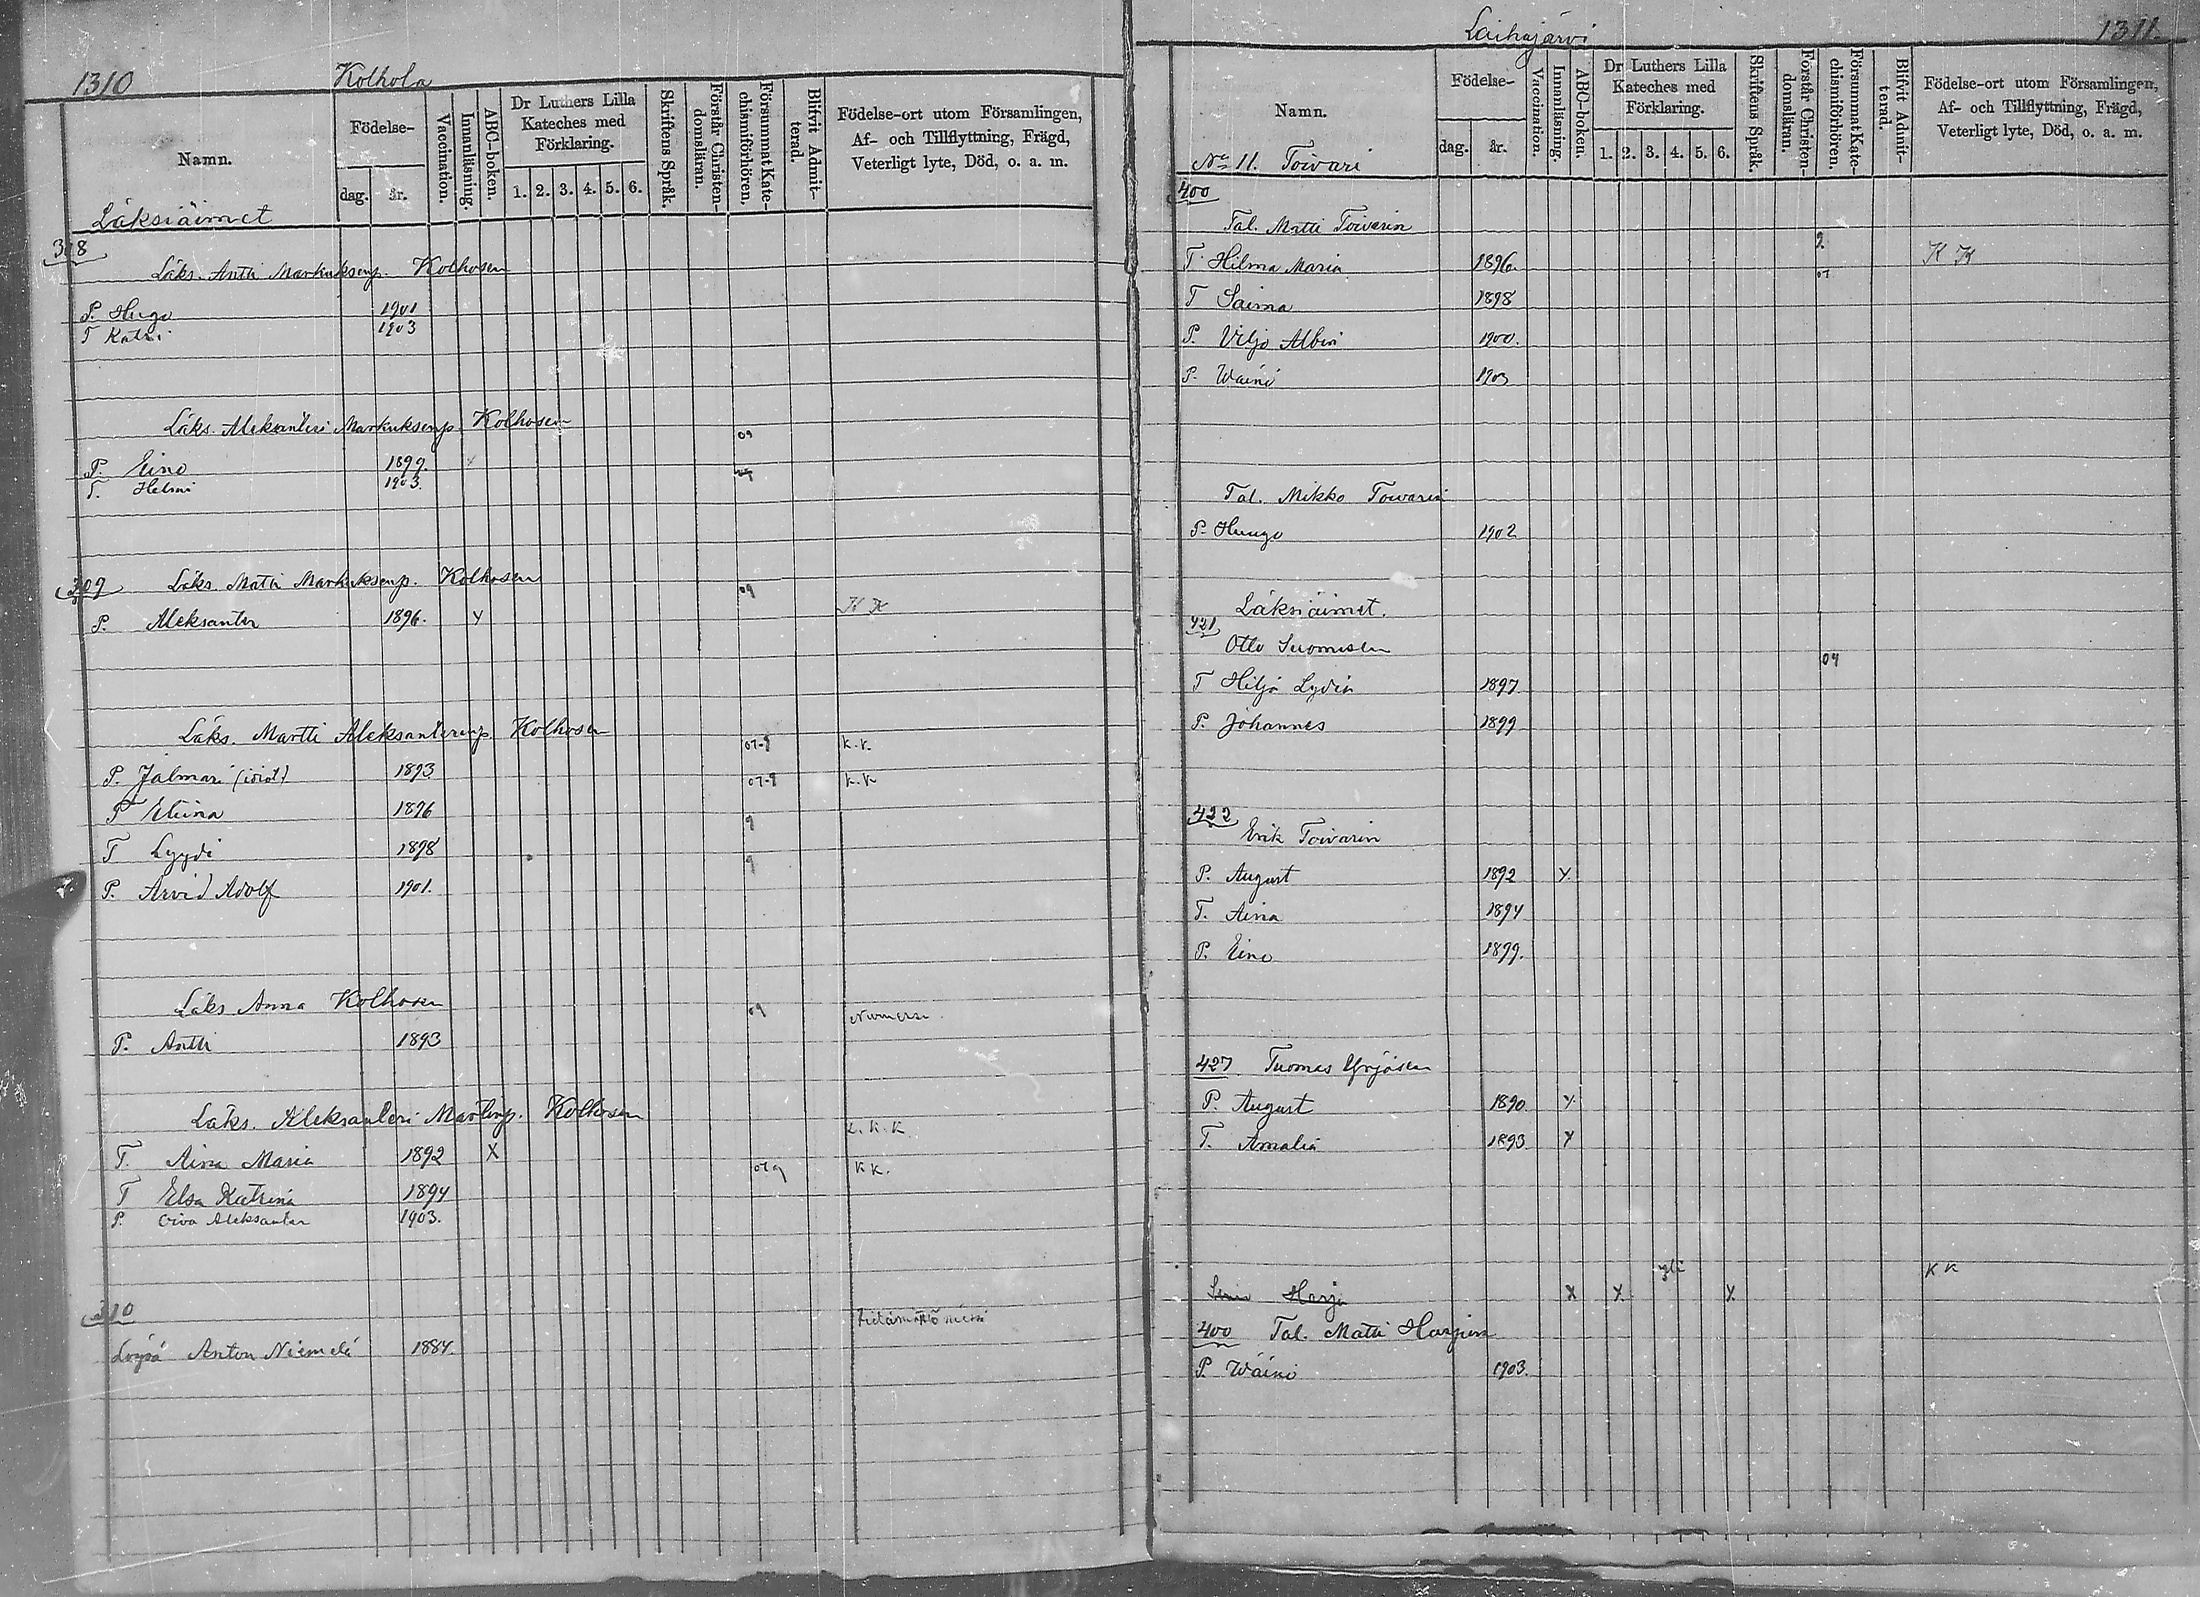 1310 Kolhola
Namn. Födelse- dag. år. Vaccination. Innanläsning. ABC-boken. Dr Luthers Lilla Kateches med Förklaring. 1. 2. 3. 4. 5. 6. Skriftens Språk. Förstår Christendomsläran. Försummat Katechismiförhören. Blifvit Admitterad. Födelse-ort utom Församlingen, Af- och Tillflyttning, Frägd, Veterligt lyte, Död, o. a. m.
Läksiäimet
308
Läks. Antti Markuksenp. Kolhosen
P. Hugo 1901
T Katri 1903
Läks. Aleksanteri Markuksenp. Kolhosen
09
P. Eino 1899.
T. Helmi 1903.
309 Läks. Matti Markuksenp. Kolhosen
09
P. Aleksanter 1896. Y K K
Läks. Martti Aleksanterinp. Kolhosen
07-9 K.K.
P. Jalmari (idiot) 1893
07-9 K.K
T Eliina 1896
9
T Lyydi 1898
9
P. Arvid Adolf 1901.
Läks Anna Kolhosen
09 Nurmessa
P. Antti 1893
Läks. Aleksanteri Martinp. Kolhosen
K.K
T. Aina Maria 1892 X
079 KK.
T Elsa Katrina 1894
P. Oiva Aleksanter 1903.
310
Loysä Anton Niemelä 1884.
Laihajärvi 1311.
Namn. Födelse- dag. år. Vaccination. Innanläsning. ABC-boken. Dr Luthers Lilla Kateches med Förklaring. 1. 2. 3. 4. 5. 6. Skriftens Språk. Förstår Christendomsläran. Försummat Katechismiförhören. Blifvit Admitterad. Födelse-ort utom Församlingen, Af- och Tillflyttning, Frägd, Veterligt lyte, Död, o. a. m.
No 11. Toivari
400
Tal. Matti Toivarin
9
T Hilma Maria 1896. 07 K K
T Saima 1898
P. Viljo Albin 1900.
P. Wäinö 1903
Tal. Mikko Toivarin
P. Huugo 1902
Läksiäimet.
421
Otto Suomisen
09
T Hilja Lydia 1897
P. Johannes 1899
422
Erik Toivarin
P. August 1892 Y.
T. Aina 1894
P. Eino 1899.
427 Tuomas Yrjösen
P. August 1890 Y
T. Amalia 1893 Y
KK
Harju X X X
400 Tal. Matti Harjun
P. Wäinö 1903.